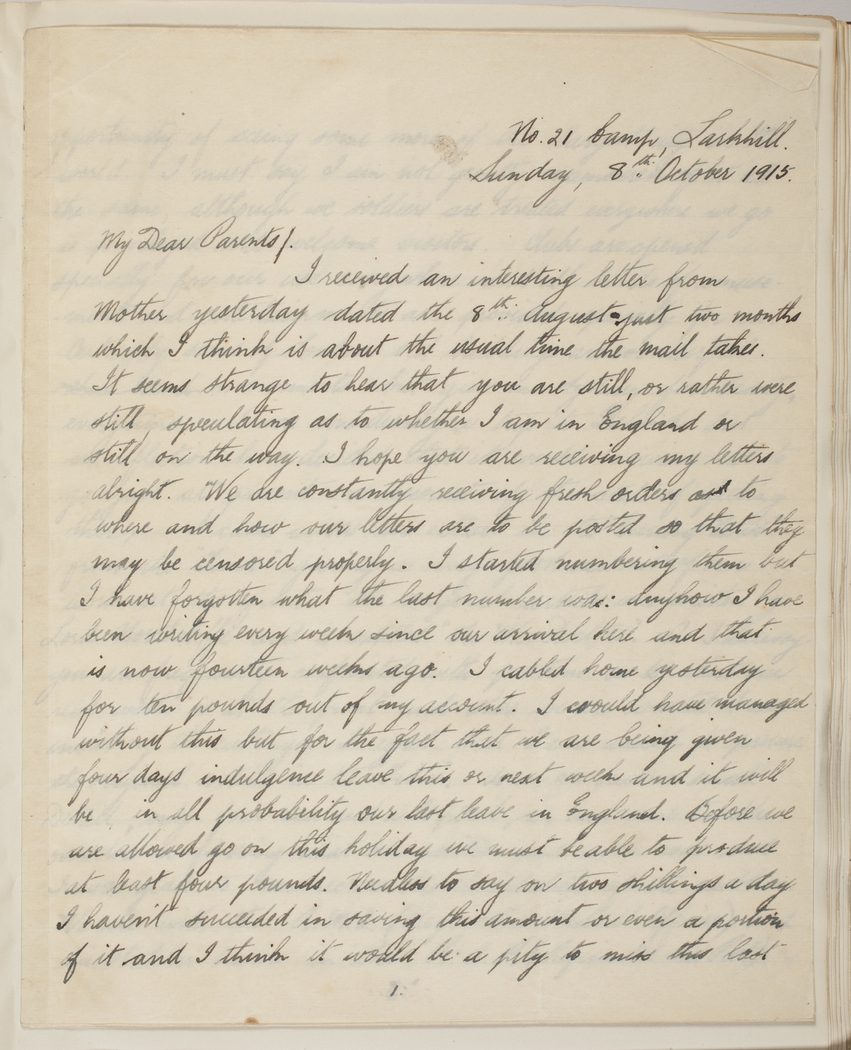 No. 21 Camp, Larkhill.
Sunday, 8th. October 1915.
My Dear Parents/.
I received an interesting letter from
Mother yesterday dated the 8th. August - just two months
which I think is about the usual time the mail takes.
It seems strange to hear that you are still, or rather were
still, speculating as to whether I am in England or
still on the way. I hope you are receiving my letters
alright. We are constantly receiving fresh orders as to
where and how our letters are to be posted so that they
may be censored properly. I started numbering them but
I have forgotten what the last number was: Anyhow I have
been writing every week since our arrival here and that
is now fourteen weeks ago. I cabled home yesterday
for ten pounds out of my account. I could have managed
without this but for the fact that we are being given
four days indulgence leave this or next week and it will
be in all probability our last leave in England. Before we
are allowed go on this holiday we must be able to produce
at least four pounds. Needless to say on two shillings a day
I haven't succeeded in saving this amount or even a portion
of it and I think it would be a pity to miss this last
1.